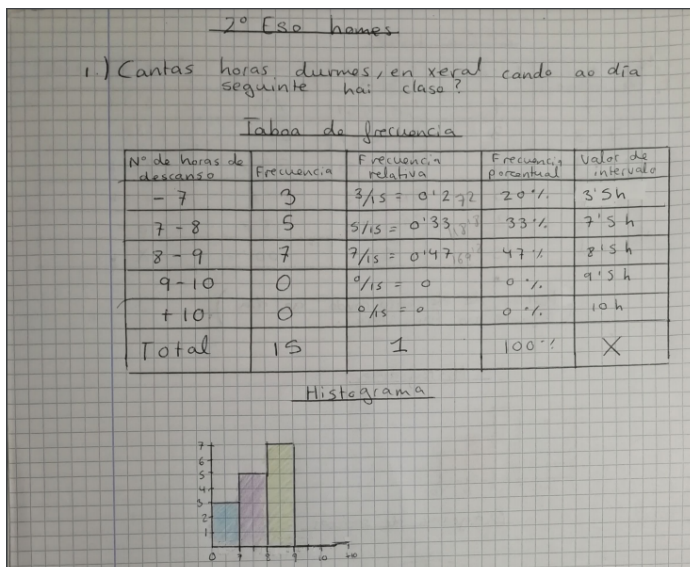 2º Eso homes
1.) Cantas horas durmes, en xeral cando ao día
seguinte hai clase?
Taboa de frecuencia
Nº de horas de descanso Frecuencia Frecuencia relativa Frecuencia porcentual Valor de intervalo
- 7 3 3/15 = 0'2 20% 3'5h
7 - 8 5 5/15 = 0'33 33% 7'5h
8 - 9 7 7/15 = 0'47 47% 8'5h
9 - 10 0 0/15 = 0 0% 9'5h
+ 10 0 0/15 = 0 0% 10h
Total 15 1 100% X
Histograma
7
6
5
4
3
2
1
0 7 8 9 10 +10